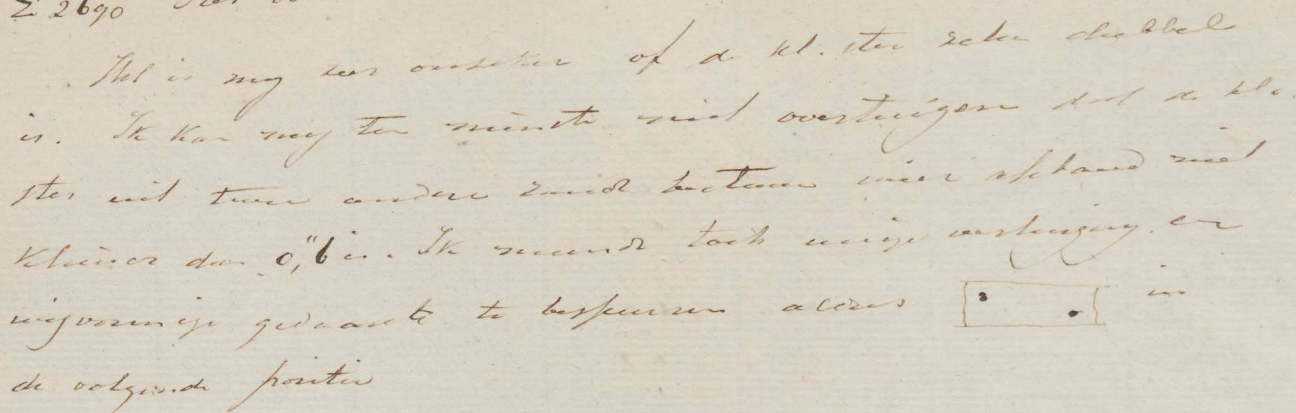 Σ 2690
Het is mij zeer onzeker of de kl. ster zeker dubbel
is. Ik kan mij ten minste niet overtuigen dat de kl.
ster uit twee andere bestaan wier afstand niet
kleiner dan 0",6 is. Ik meende toch eenige verlenging en
wigvormige gedaante te bespeuren aldus in
de volgende positie